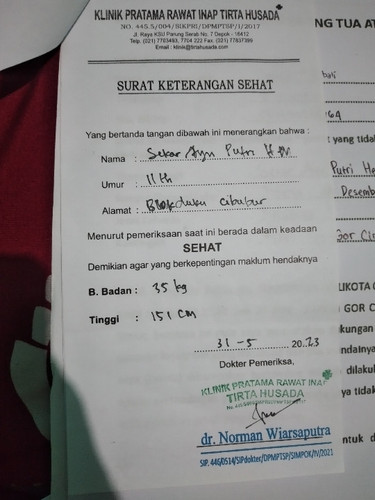 KLINIK PRATAMA RAWAT INAP TIRTA HUSADA
NO. 445.5/004/SIKPRI/DPMPTSP/I/2017
Jl. Raya KSU Parung Serab No. 7 Depok - 16412
Telp. (021) 7783493, 7704 222 Fax. (021) 77837399
Email : klinik@tirtahusada.com
SURAT KETERANGAN SEHAT
Yang bertanda tangan dibawah ini menerangkan bahwa :
Nama : Sekar Ayu Putri H
Umur : 11 th
Alamat : Blok duku cibubur
Menurut pemeriksaan saat ini berada dalam keadaan
SEHAT
Demikian agar yang berkepentingan maklum hendaknya
B. Badan : 35 kg
Tinggi : 151 cm
31 - 5 20..23
Dokter Pemeriksa,
KLINIK PRATAMA RAWAT INAP
TIRTA HUSADA
dr. Norman Wiarsaputra
SIP. 446/0514/SIPdokter/DPMPTSP/SIMPOK/IV/2021
NG TUA AT
64
yang tidal
Putri Ha
Desemb
Gor Cir
LIKOTA
GOR C
kungan
ndalnya
dilakul
ya tidak
ntuk d